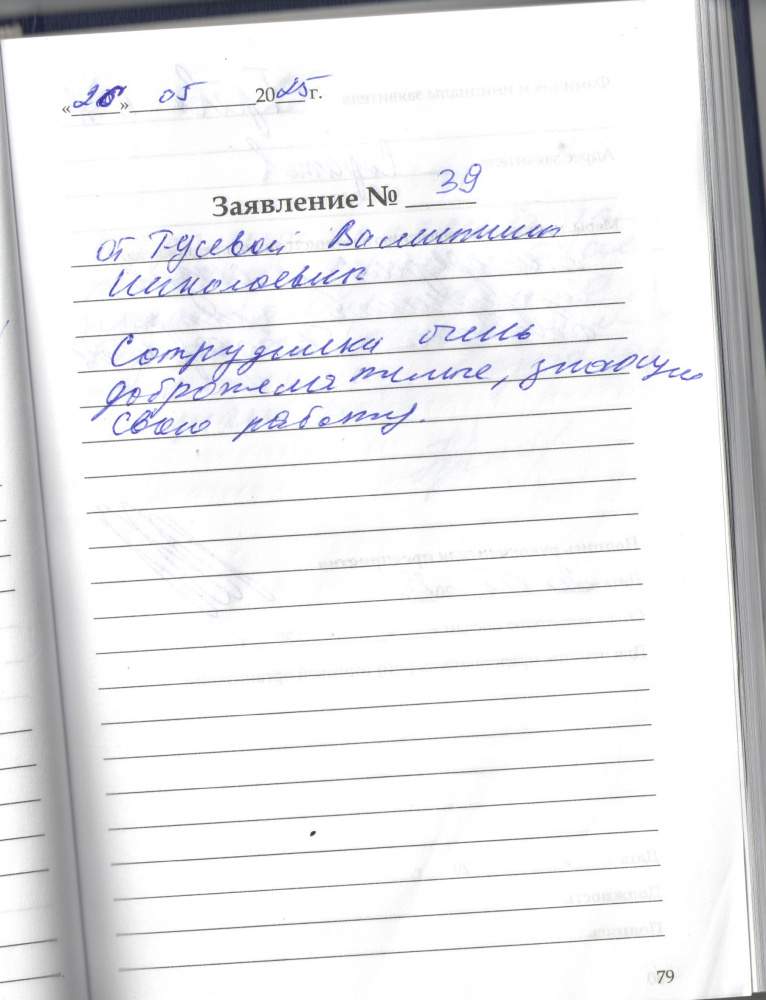 «26» 05 2025 г.
Заявление № 39
от Гусевой Валентины
Николаевны
Сотрудники очень
доброжелательные, знающие
свою работу.
79